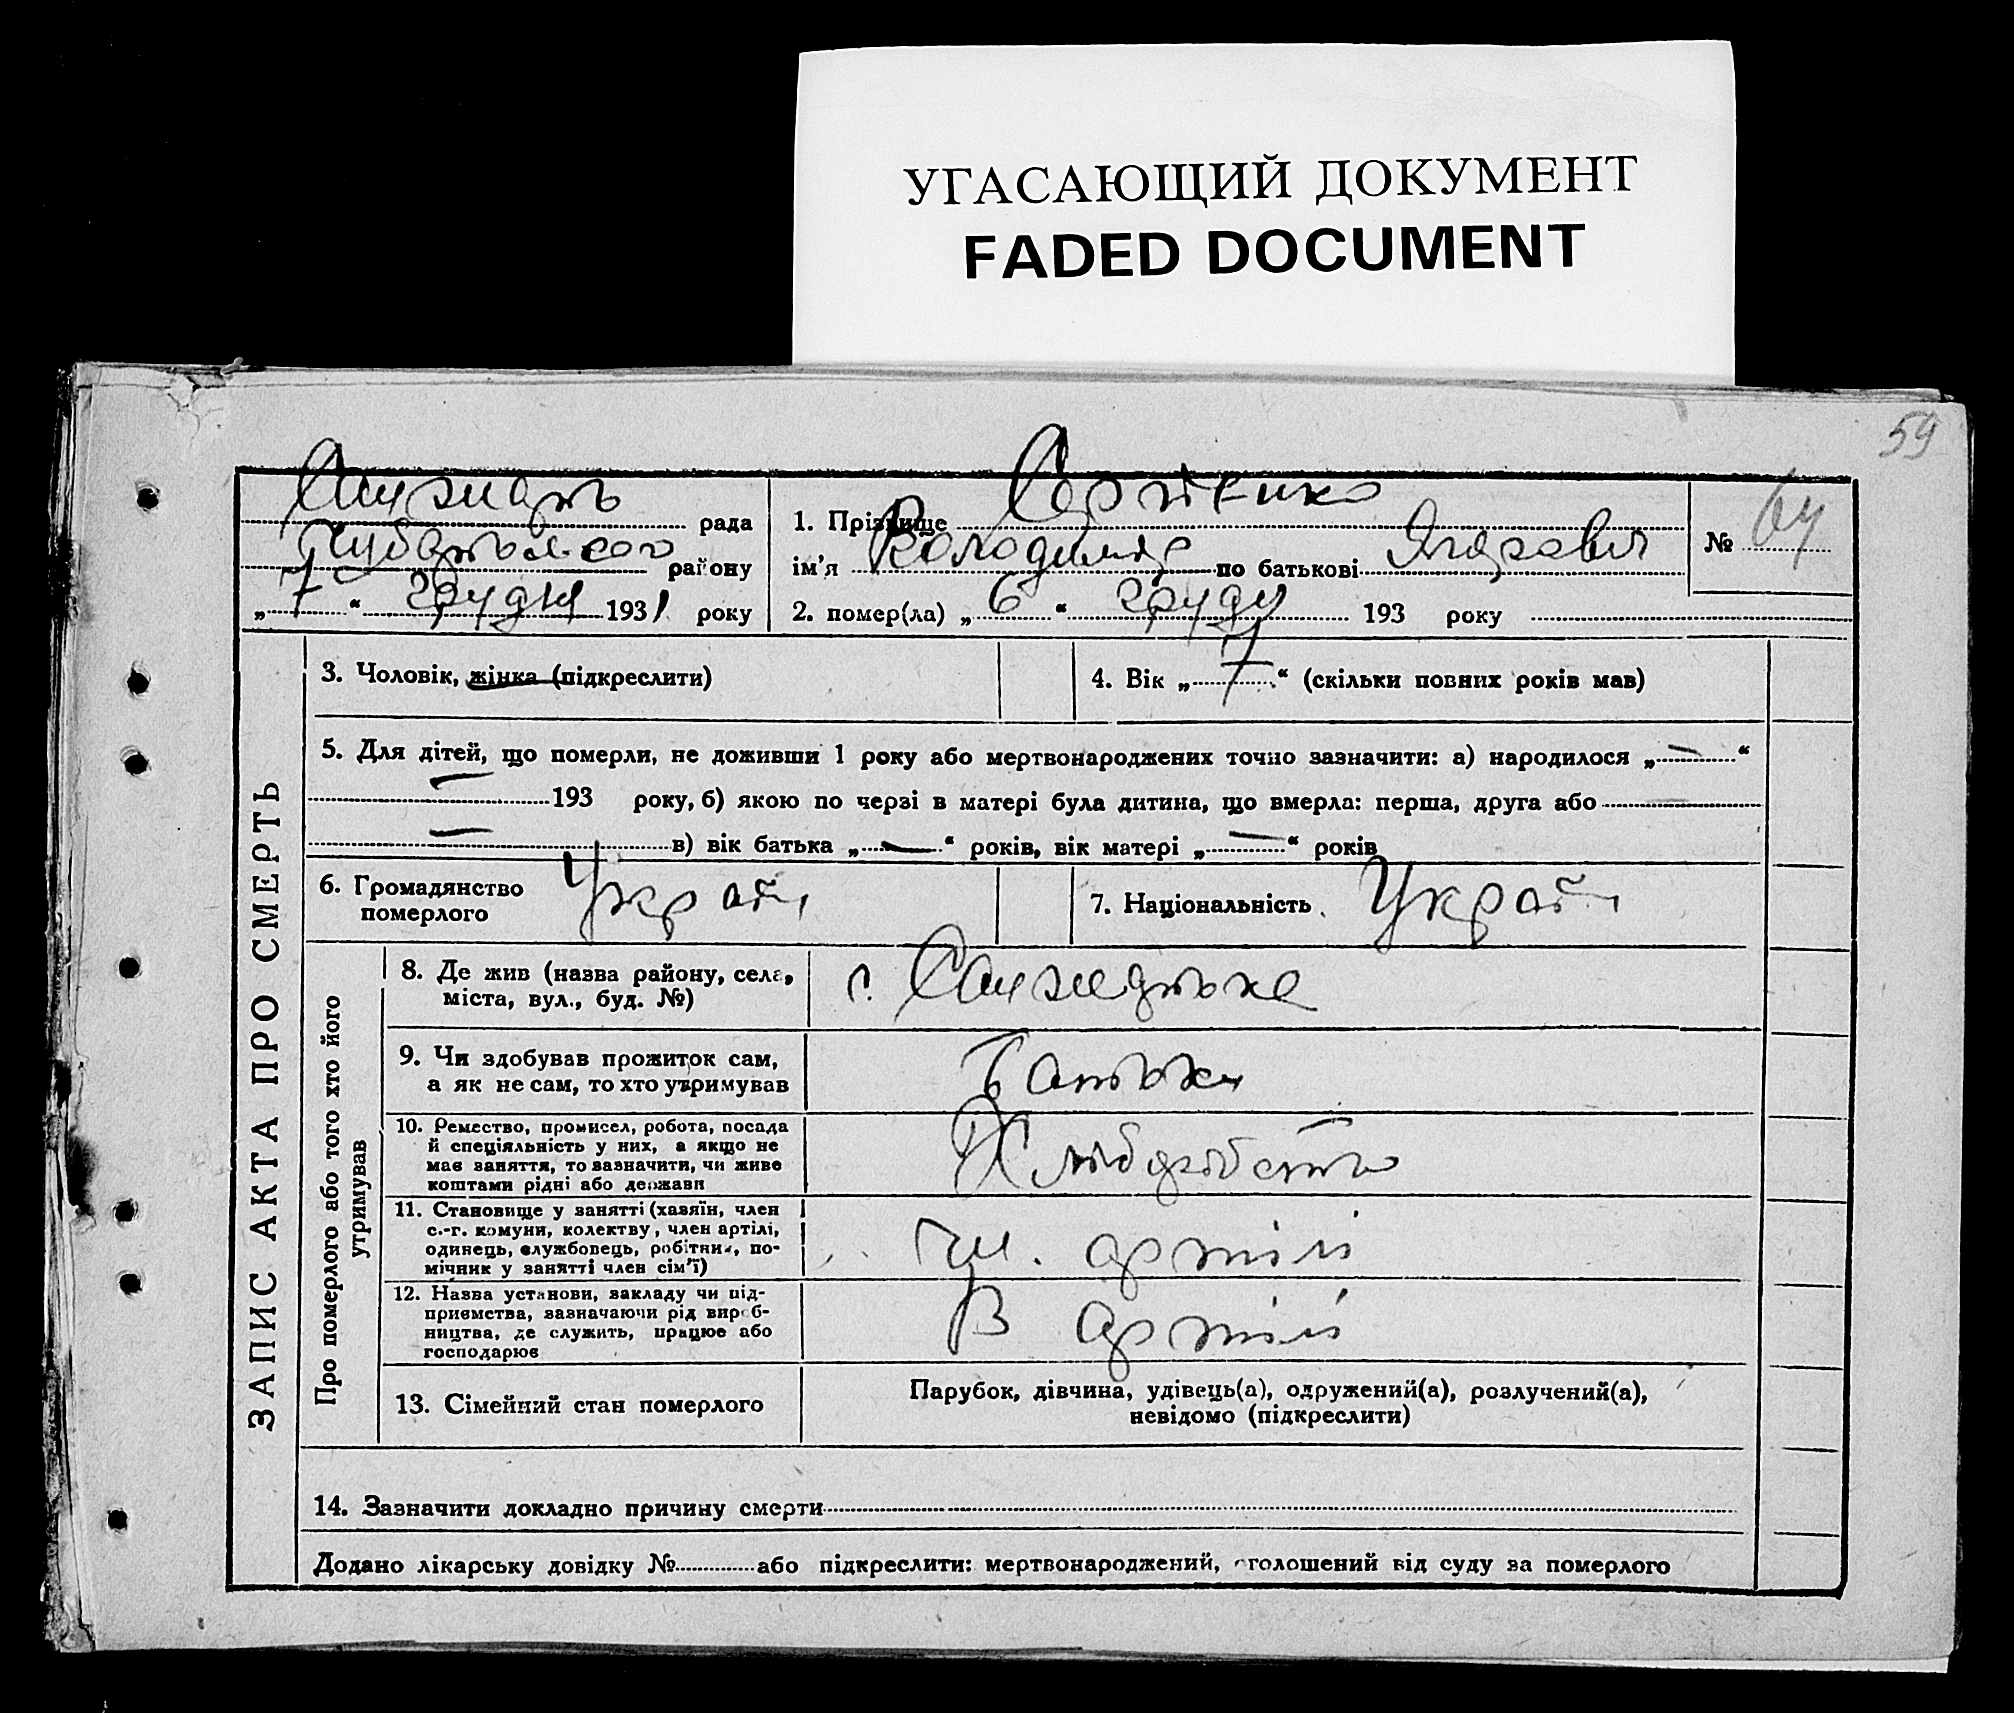 УГАСАЮЩИЙ ДОКУМЕНТ
FADED DOCUMENT
59
рада
району
„ 7 “ грудня 1931 року
1. Прізвище Сергієнко
ім'я Володимир по батькові
№ 64
2. помер(ла) „ 6 “ груд 193 року
ЗАПИС АКТА ПРО СМЕРТЬ
3. Чоловік, жінка (підкреслити)
4. Вік „ 7 “ (скільки повних років мав)
5. Для дітей, що померли, не доживши 1 року або мертвонароджених точно зазначити: а) народилося „ — “
— 193 року, б) якою по черзі в матері була дитина, що вмерла: перша, друга або
— в) вік батька „ — “ років, вік матері „ — “ років
6. Громадянство
померлого
Украї
7. Національність Украї
Про померлого або того хто його
утримував
8. Де жив (назва району, села,
міста, вул., буд. №)
9. Чи здобував прожиток сам,
а як не сам, то хто утримував
Батьки
10. Ремество, промисел, робота, посада
й спеціяльність у них, а якщо не
має заняття, то зазначити, чи живе
коштами рідні або держави
11. Становище у занятті (хазяїн, член
с.-г. комуни, колективу, член артілі,
одинець, службовець, робітник, по-
мічник у занятті член сім'ї)
чл. артілі
12. Назва установи, закладу чи під-
приємства, зазначаючи рід вироб-
ництва, де служить, працює або
господарює
В артілі
13. Сімейний стан померлого
Парубок, дівчина, удівець(а), одружений(а), розлучений(а),
невідомо (підкреслити)
14. Зазначити докладно причину смерти
Додано лікарську довідку № або підкреслити: мертвонароджений, оголошений від суду за померлого